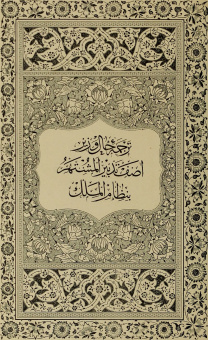 ترجمة حال وزير
آصف تدبير المشتهر
بنظام الملك